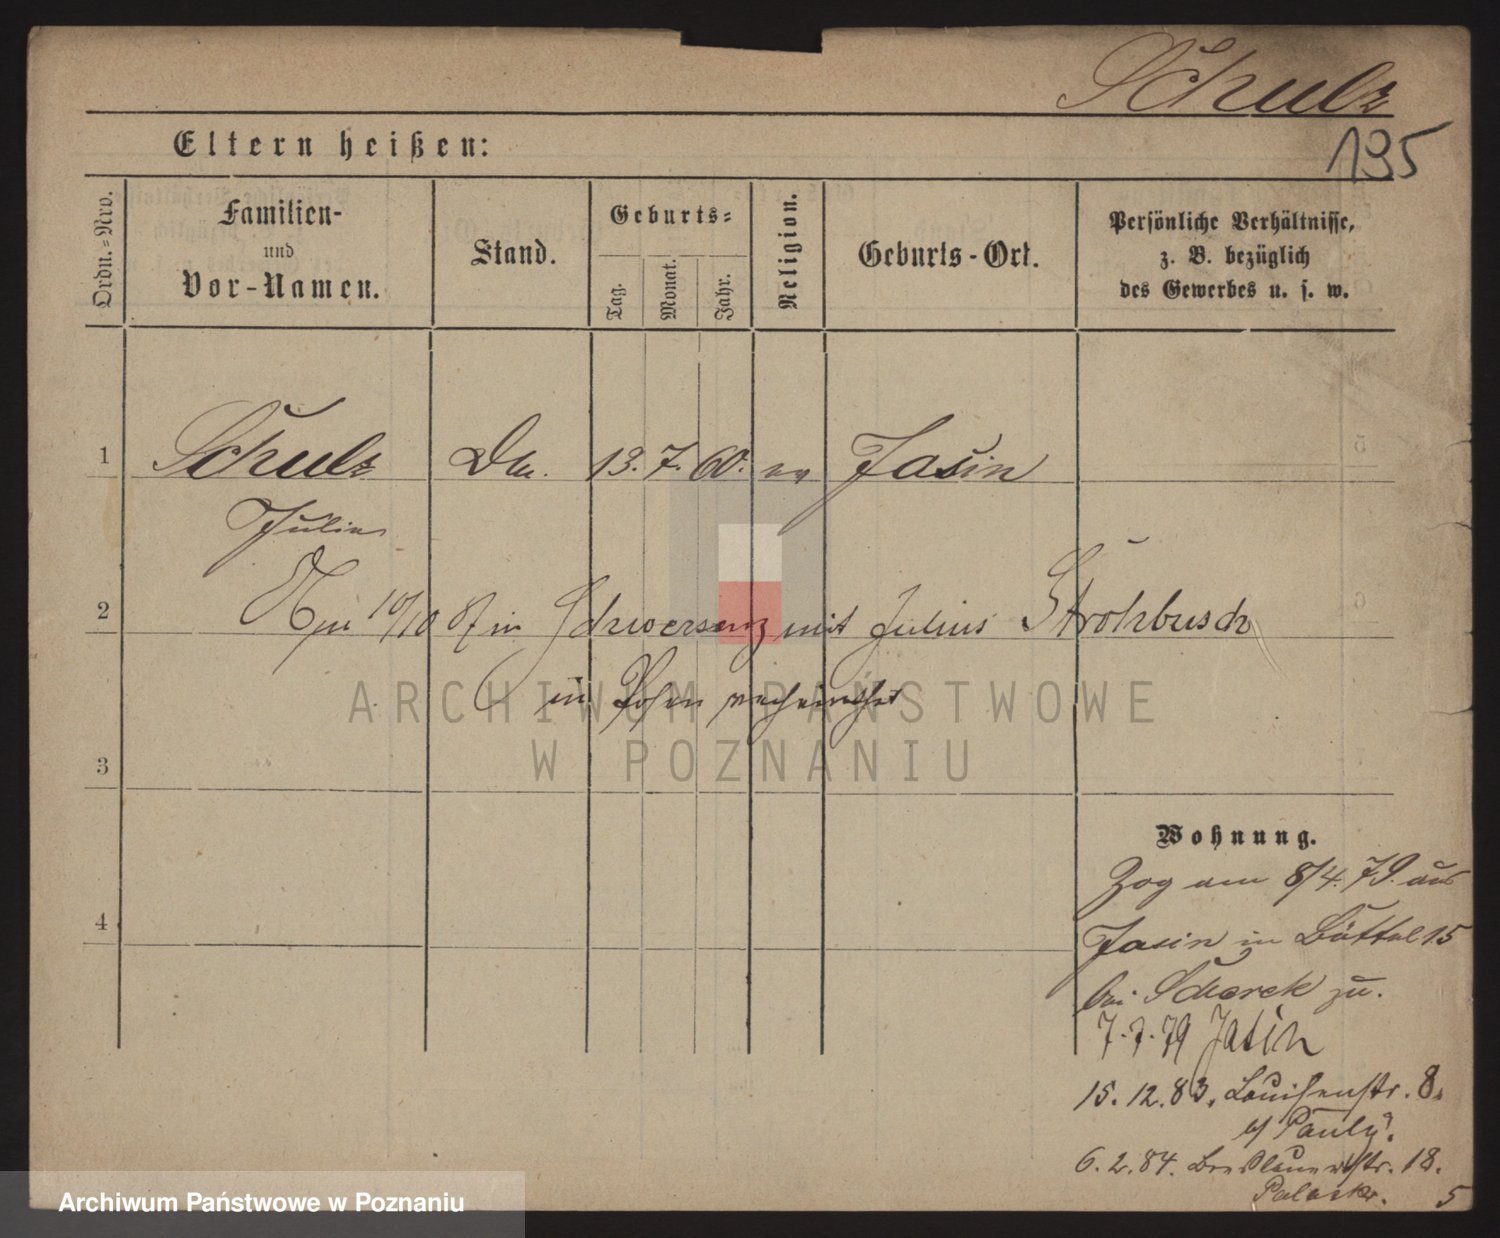 Schulz
135
Eltern heißen:
Ordn.=Nro.
Familien-
und
Vor-Namen.
Stand.
Geburts=
Tag.
Monat.
Jahr.
Religion.
Geburts-Ort.
Persönliche Verhältnisse,
z. B. bezüglich
des Gewerbes u. s. w.
1 Schulz 13. 7. 60. ev Jasin
Julie
2 10/10 87 in Schwersenz mit Julius Strohbusch
in Posen verheirathet
ARCHIWUM PAŃSTWOWE
W POZNANIU
3
Wohnung.
Zog am 8/4. 79. aus
4 Jasin in Büttel 15
bei zu.
7. 7. 79 Jasin
15. 12. 83. Louisenstr. 8.
b/ Pauly.
6. 2. 84. Breslauerstr. 18.
5
Archiwum Państwowe w Poznaniu